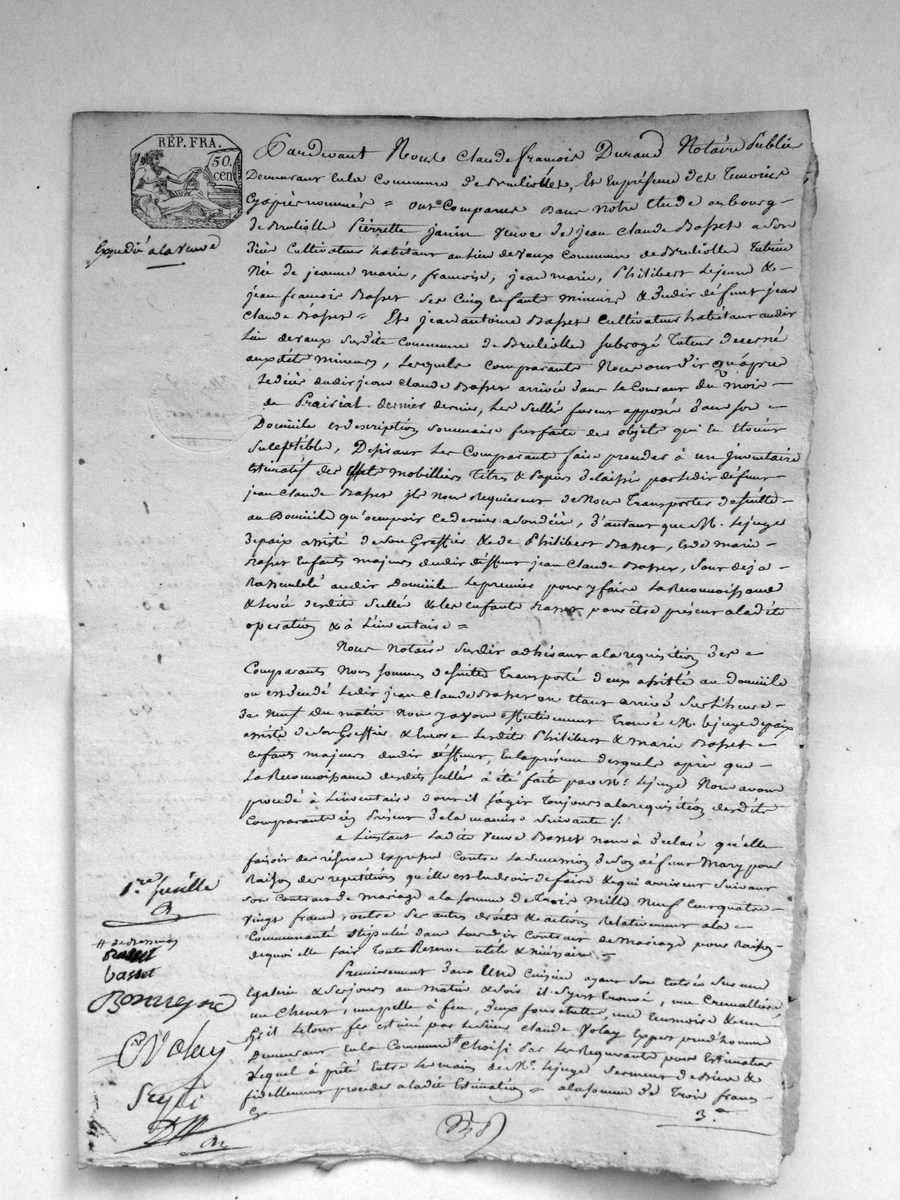 RÉP. FRA.
50. cen
Expédié a la veuve
Pardevant Nous Claude françois Durand Notaire Public
Demeurant en la Commune de Brulliolles, Et en présence des Temoins
Cy après nommés = ont Comparus Dans Notre Etude au bourg
de Brulliolle Pierrette Janin Veuve de jean Claude Basset a Son
Décès Cultivateur habitant au lieu de vaux Commune de Brulliolle Tutrice
Née de jeanne marie, françoise, jean marie, Philibert Lejeune &
jean françois Basset Ses Cinq enfants Mineurs & dudit défunt jean
Claude Basset = Et jean antoine Basset Cultivateur habitant audit
Lieu de vaux Susdite Commune de Brulliolle Subrogé Tuteur Decerné
auxdits Mineurs, Lesquels Comparants Nous ont dit qu'après
Le décès dudit jean Claude Basset arrivée dans le Courant du mois
de Prairial dernier, Les Scellés furent apposés dans Son
Domicile et description Sommaire fut faite des objets qui En étoient
Suceptibles, Desirant Les Comparants faire proceder à un Inventaire
Estimatif des effets Mobilliers Titres & Papiers délaissés par Ledit défunt
jean Claude Basset ils Nous Requierent de Nous Transporter de Suitte
au Domicile qu'occupoit Ce dernier a Son décès, d'autant que M. Lejuge
de paix assisté de Son Greffier & de Philibert Basset, & de marie
Basset Enfants majeurs dudit deffunt jean Claude Basset, Sont deja
Rassemblés audit Domicile Le premier pour y faire La Reconnoissance
& Levée desdits Scellés & les enfants Basset pour être présent a ladite
operation & à L'inventaire =
Nous Notaire Susdit adhérant a la requisition des
Comparants Nous Sommes de Suitte Transporté d'eux assisté au domicile
ou est decédé Ledit jean Claude Basset ou étant arrivé Sur L'heure
de Neuf Du matin Nous y avons effectivement Trouvé M. Lejuge de paix
assisté de Son Greffier, & Encore Lesdits Philibert & marie Basset
enfants majeurs dudit deffunt, En la présence desquels après que
La Reconnoissance desdits Scellés à été faite par M. Lejuge Nous avons
procédé à L'inventaire dont il S'agit Toujours a la requisition desdits
Comparants en Présence De la maniere Suivante :/.
a L'instant Ladite Veuve Basset nous à déclaré qu'elle
faisoit des réserves expresses Contre La Succession de Son défunt Mary pour
Raison des repetitions qu'elle est en droit de faire & qui arrivent Suivant
Son Contrat de mariage a la Somme de Trois Mille Neuf Cent quatre
vingt francs, outre Ses autres droits & actions Relativement a la
Communauté Stipulée dans Sondit Contrat de Mariage pour Raison
de quoi elle fait Toute Reserve utile & nécéssaire =
Premierement Dans Une Cuisine ayant Son Entrée Sur une
Galerie & Ses jours au Matin & Soir il S'y est trouvé, une Cremalliere
un Chenet, une pelle à feu, deux
gril Le tout fut estimé par Le Sieur Claude Volay Expert prud'homme
Demeurant En la Commune Choisi Par Les Requérants pour Estimateur
Lequel à prêté Entre Les mains de M. Lejuge Serment de bien &
fidellement proceder a ladite Estimation = a la Somme de Trois francs
3.f
1.re feuille
Basset
Bonneyné
C Volay